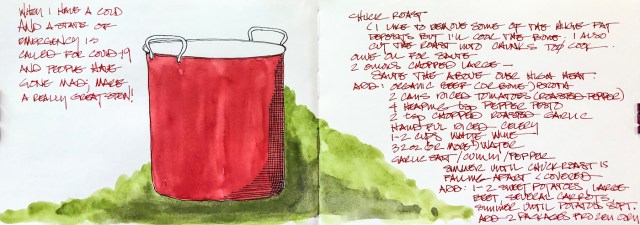 WHEN I HAVE A COLD
AND A STATE OF
EMERGENCY IS
CALLED FOR COVID-19
AND PEOPLE HAVE
GONE MAD; MAKE
A REALLY GREAT STEW!
CHUCK ROAST
( I LIKE TO REMOVE SOME OF THE HUGE FAT
DEPOSITS BUT I'LL COOK THE BONE. I ALSO
CUT THE ROAST INTO CHUNKS TO COOK.
OLIVE OIL FOR SAUTE
2 ONIONS CHOPPED LARGE —
SAUTE THE ABOVE OVER HIGH HEAT.
ADD: ORGANIC BEEF (OR BONE) BROTH
2 CANS DICED TOMATOES (ROASTED PEPPER)
4 HEAPING tsp PEPPER PESTO
2 tsp CHOPPED ROASTED GARLIC
HANDFUL DICED CELERY
1-2 CUPS WHITE WINE
32 OZ (OR MORE) WATER
GARLIC SALT / CUMIN / PEPPER
SIMMER UNTIL CHUCK ROAST IS
FALLING APART & COVERED
ADD: 1-2 SWEET POTATOES, LARGE
BEET, SEVERAL CARROTS
SIMMER UNTIL POTATOES SOFT.
ADD 2 PACKAGES FROZEN CORN